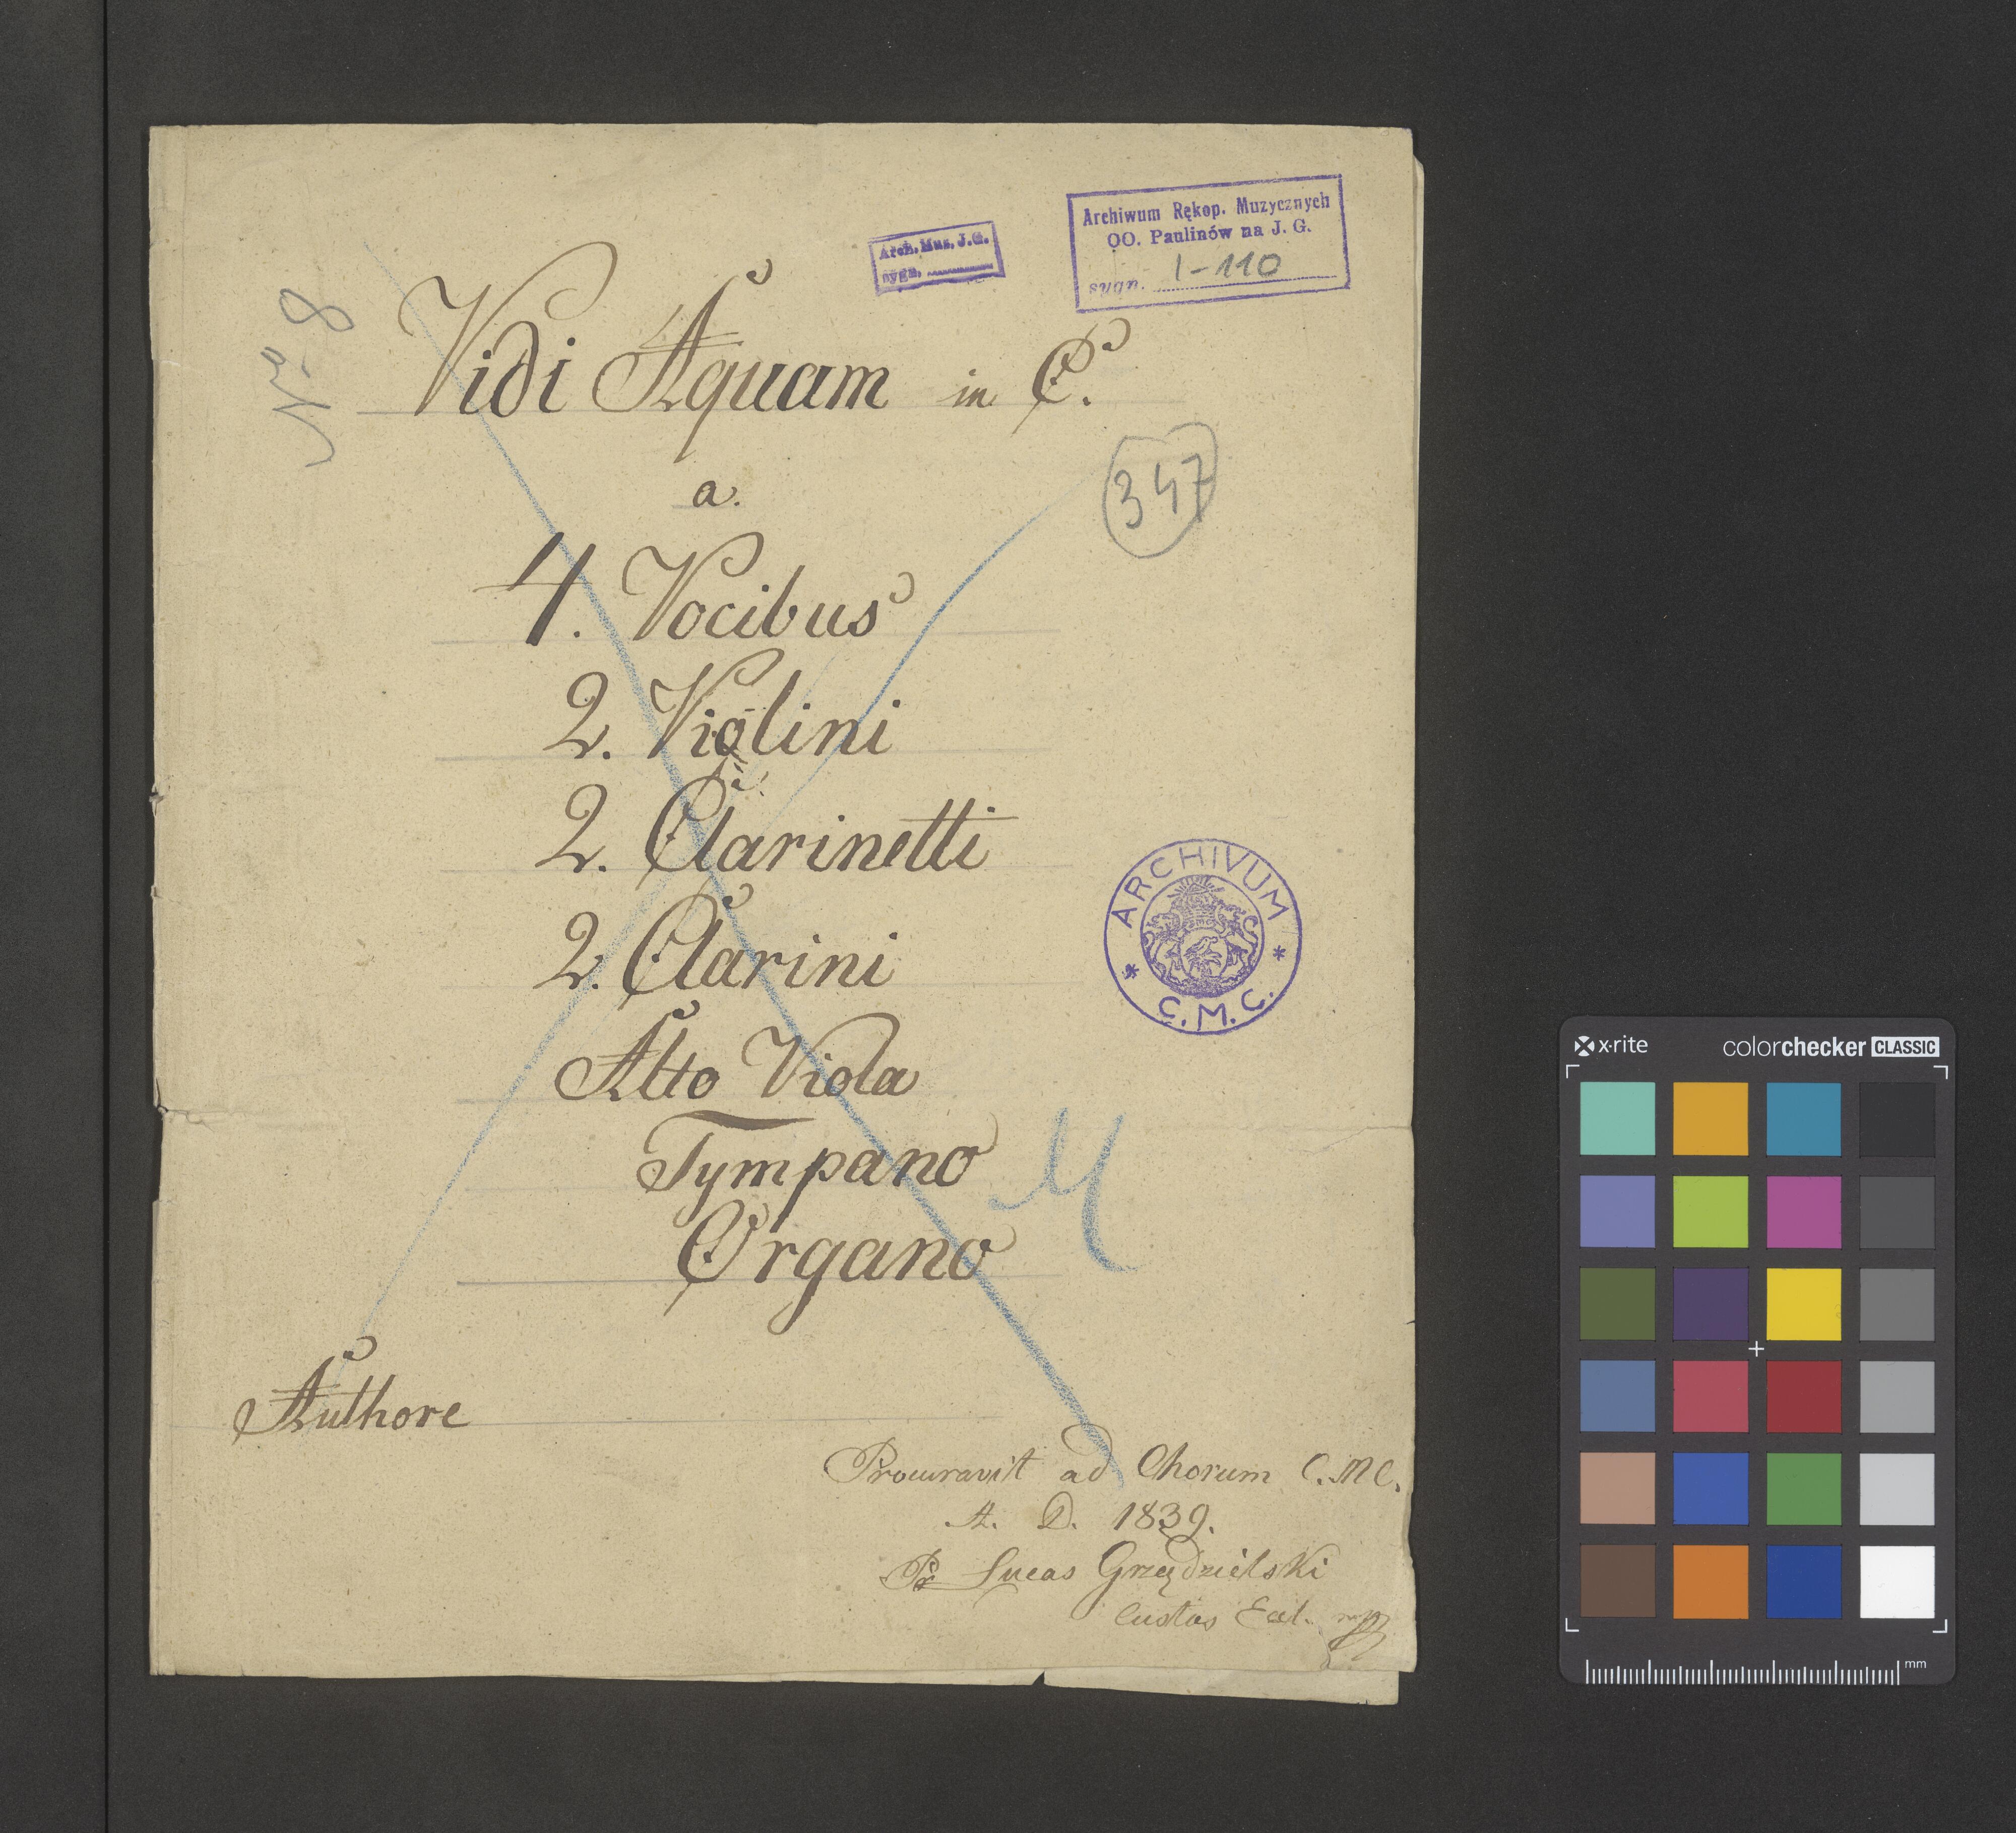 Arch. Mus. J. G.
sygn.
Archiwum Rękop. Muzycznych
OO. Paulinów na J. G.
sygn. I-110
No 8
Vidi Aquam in C.
347
a.
4. Vocibus
2. Violini
2. Clarinetti
2. Clarini
ARCHIVUM
* C. M. C. *
Alto Viola
Tympano
Organo
M
Authore
Procuravit ad Chorum C. M C.
A. D. 1839.
Pr Lucas Grzędzielski
Custos Eccl.
x·rite colorchecker CLASSIC
mm